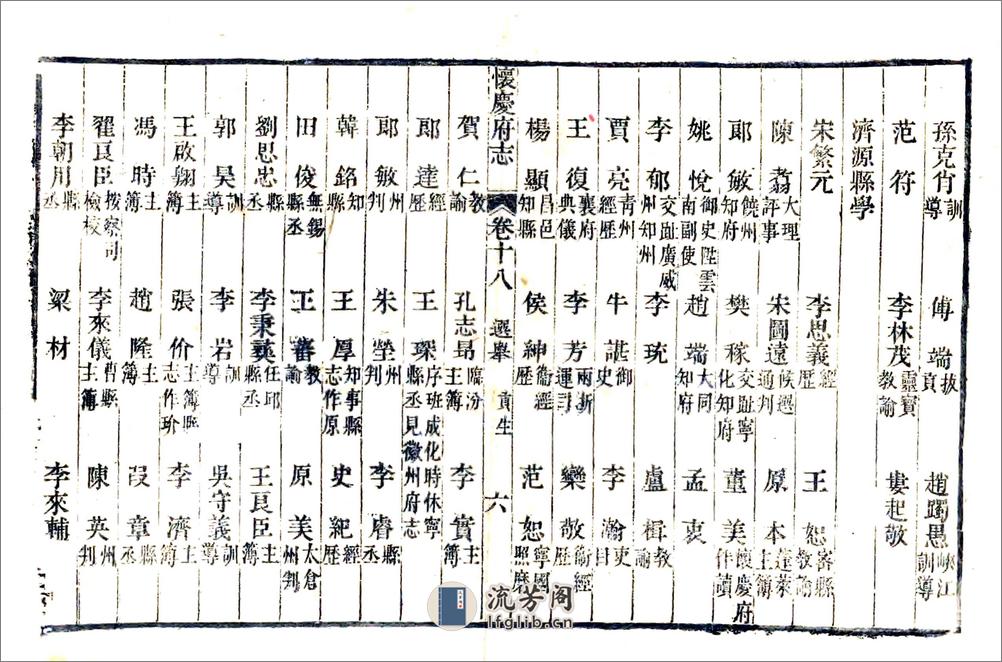 孫克肖訓導 傅端拔貢 趙躅愚峽江訓導
范符 李林茂靈寶教諭 婁起敬
濟源縣學
宋繁元 李思義經歷 王恕審縣教諭
陳翥大理評事 宋圖遠候選通判 原本蓬萊主簿
郎敏饒州知府 樊稼交趾寧化知府 董美懷慶府伴讀
姚悅御史陞雲南副使 趙端大同知府 孟衷
李郁交趾廣威州知州 李玩 盧楫教諭
賈亮青州經歷 牛諶御史 李瀚吏目
王復襄府典儀 李芳兩浙運 欒敬衞經歷
楊顯昌邑知縣 侯紳衞經歷 范恕寧國照磨
懷慶府志 卷十八 選舉 貢生 六
賀仁教諭 孔志昂臨汾主簿 李實主簿
郎達經歷 王琛序班成化時休寧縣丞見徽州府志
郎敏州判 朱瑩州判 李睿縣丞
韓銘知縣 王厚知事縣志作原 史紀經歷
田俊無錫縣丞 王審教諭 原美太倉州判
劉思忠縣丞 李秉彝任邱縣丞 王良臣主簿
郭昊訓導 李岩訓導 吳守義訓導
王啟翔主簿 張价主簿縣志作玠 李濟主簿
馮時主簿 趙隆主簿 段章縣丞
翟良臣按察司檢校 李來儀曹縣主簿 陳英州判
李朝用縣丞 梁材 李來輔
流芳阁
lfglib.cn